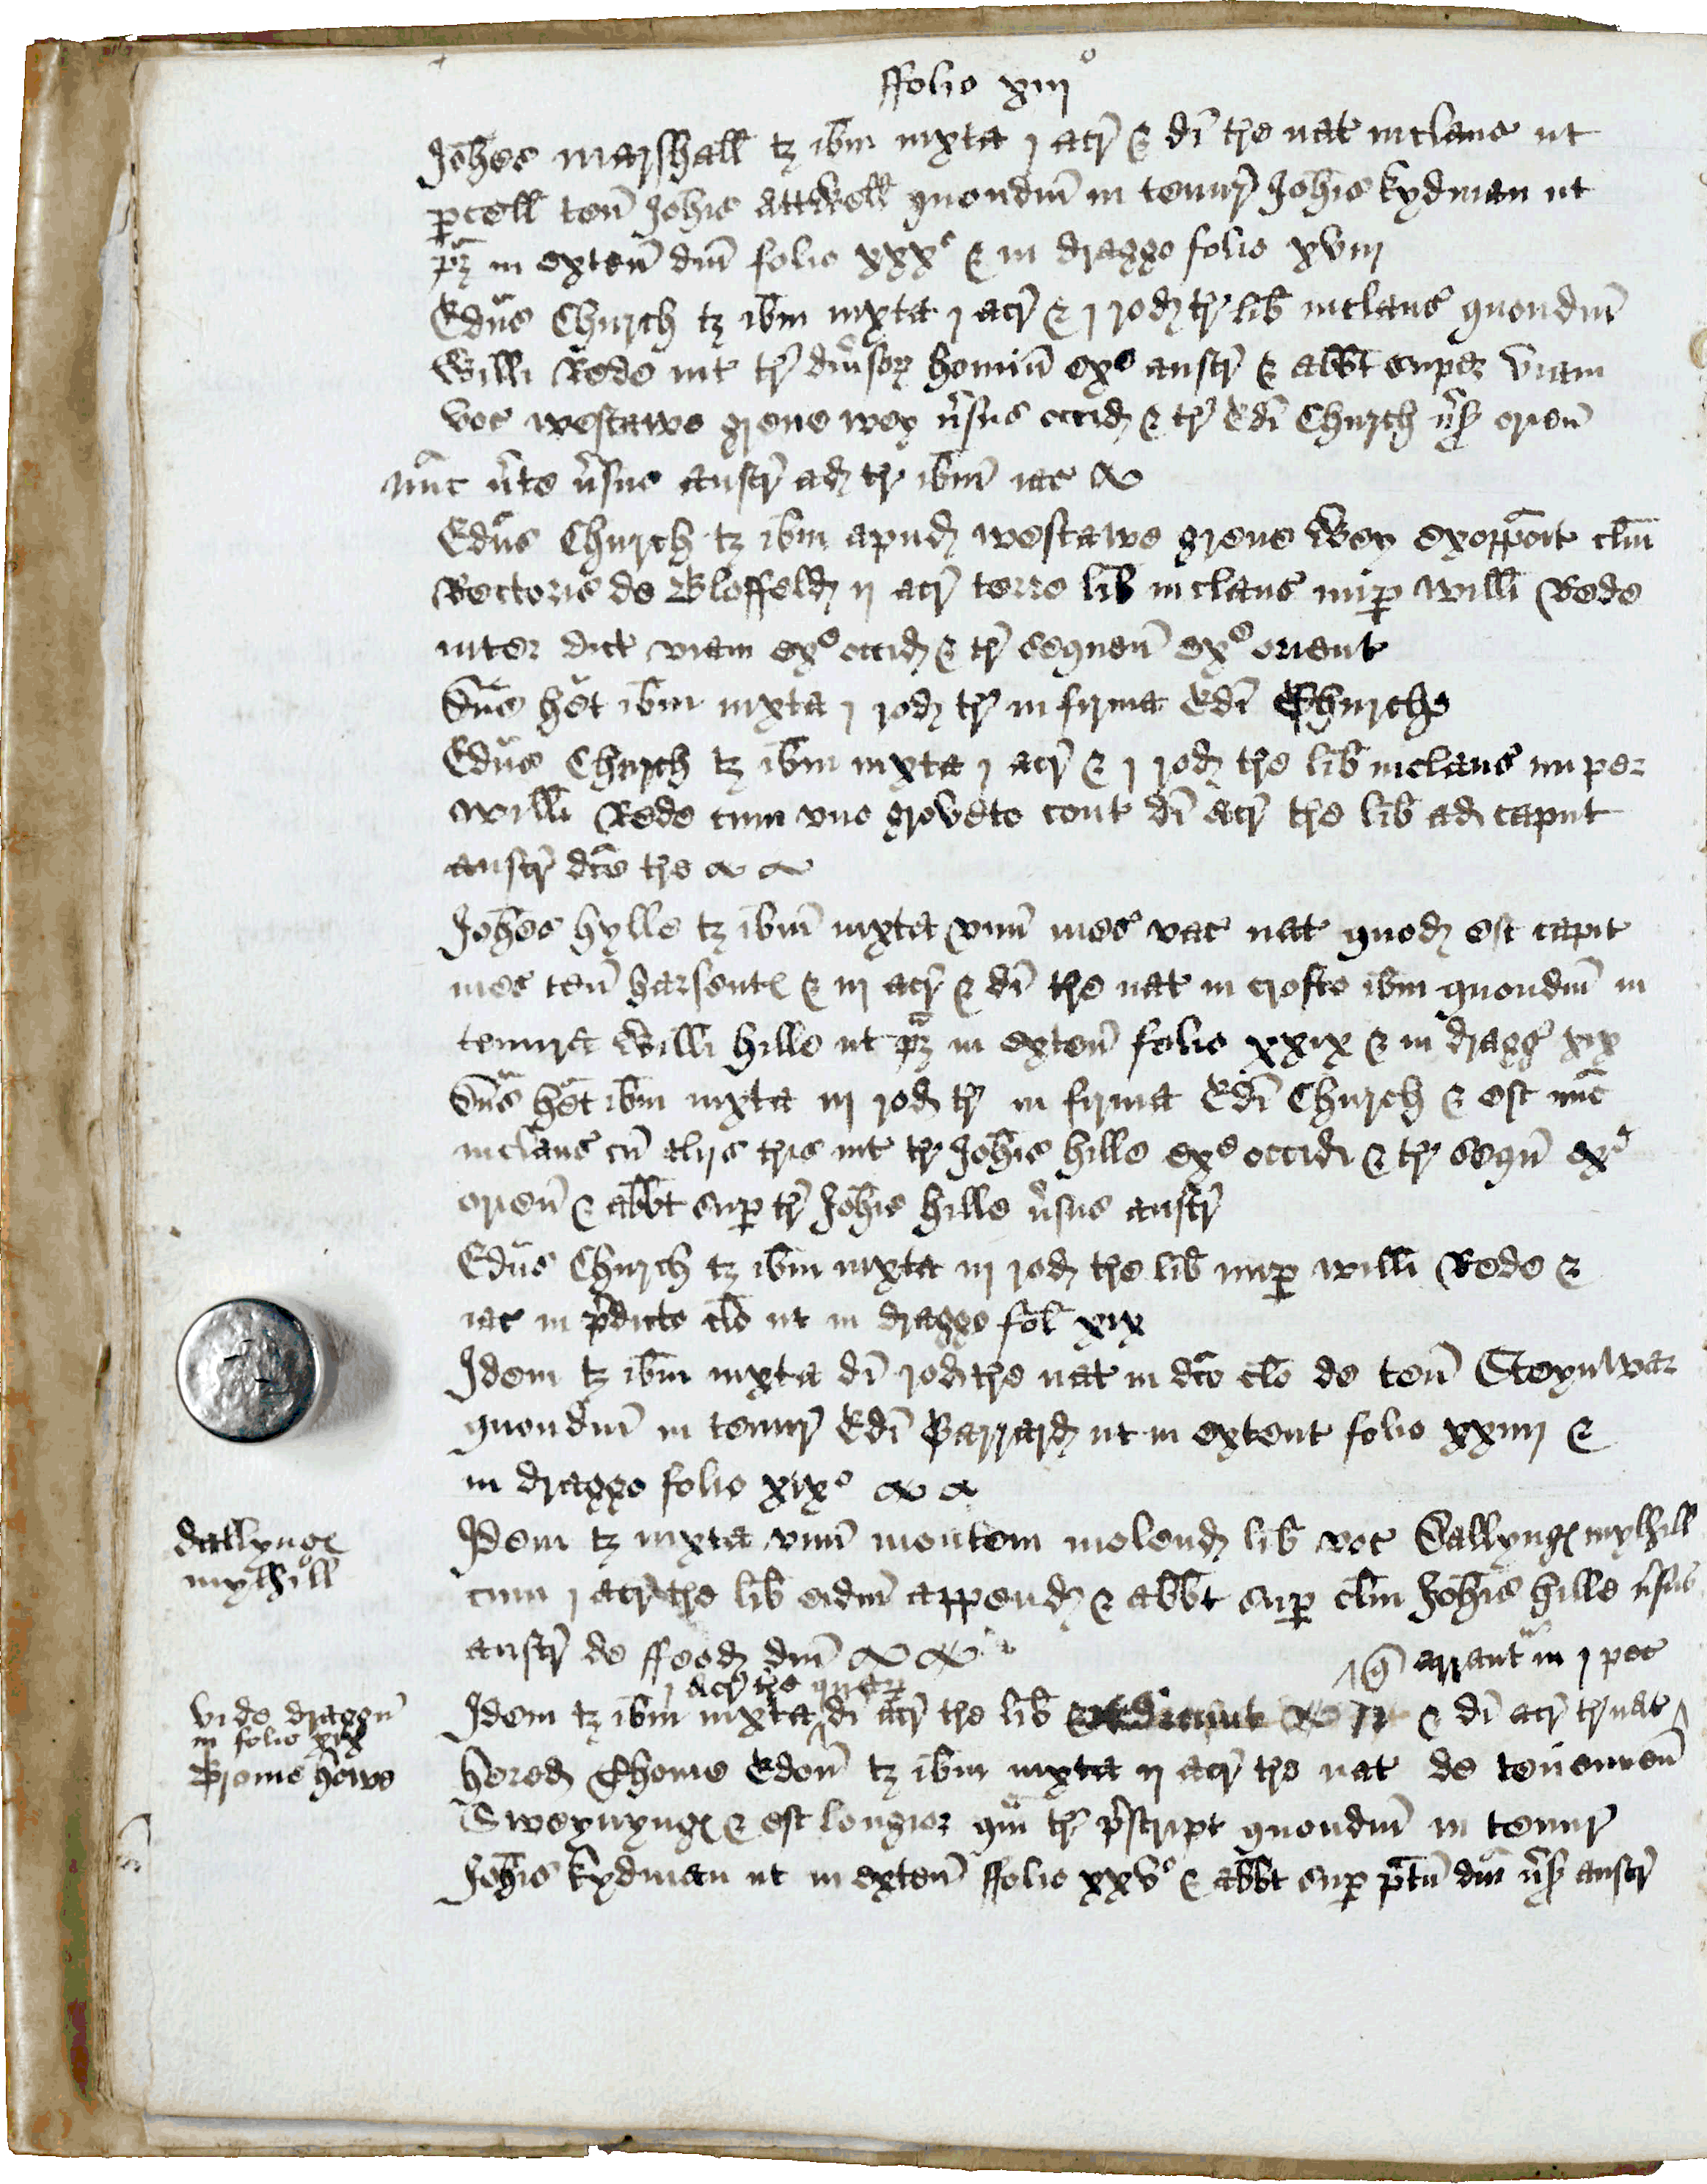 ffolio xiij°
Joh̄es marsshall tȝ ib̄m iuxta j acr̄ & di tr̄e nat̄ inclaus ut
ꝑcell ten̄ Joh̄is Attwell quondm̄ in tenur̄ Joh̄is kydman ut
pȝ in exten̄ dm̄ folio xxx° & in dragge folio xviij
Edūs Church tȝ ib̄m iuxta j acr̄ & j rod tr̄ lib̄ inclaus quondm̄
Willi Rede int tr̄ diu̓soꝝ homin̄ exᵉ austr̄ & abb̄t super viam
voc westawe grene wey v̓sus occid & tr̄ Edi Church v̓sꝰ orien̄
nūc v̓te v̓sus austr̄ ad tr̄ ib̄m iac
Edūs Church tȝ ib̄m apud westawe grene Wey exopport clm̄
Rectoris de Bloffeld ij acr̄ terre lib̄ inclaus nuꝑ Willi Rede
inter dict viam exᵉ occid & tr̄ sequen̄ exᵉ orient
Dn̄s het ib̄m iuxta j rod tr̄ in firma Edi Churche
Edūs Church tȝ ib̄m iuxta j acr̄ & j rod tr̄e lib̄ inclaus nuper
Willi Rede cum vno groveto cont di acr̄ tr̄e lib̄ ad caput
austr̄ dc̄e tr̄e
Joh̄es hylle tȝ ib̄m iuxta vnū mes vac nat quod est capit
mes ten̄ harsent & iij acr̄ & di tr̄e nat in crofto ib̄m quondm̄ in
tenura Willi hille ut pȝ in exten̄ folio xxix & in dragg xix
Dn̄s het ib̄m iuxta iij rod tr̄ in firma Edi Church & est nūc
inclaus cū alijs tr̄is int tr̄ Joh̄is hille exᵉ occid & tr̄ seqū exᵉ
orien̄ & abb̄t suꝑ tr̄ Joh̄is hille v̓sus austr̄
Edūs Church tȝ ib̄m iuxta iij rod tr̄e lib̄ nuꝑ Willi Rede &
iac in p̓dicto clo ut in dragge fol xix
Idem tȝ ib̄m iuxta di rod tr̄e nat in dc̄o clo de ten̄ Steynwar
quondm̄ in tenur̄ Edi Barrard ut in extent folio xxiiij &
in dragge folio xix°
dallynge
myllhill
Idem tȝ iuxta vnū montem molend lib̄ voc Dallyngꝭ mylhill
cum j acr̄ tr̄e lib̄ eidm̄ append & abb̄t suꝑ clm̄ Joh̄is hille v̓sus
austr̄ de ffeod dm̄
arrant in j pec
j acr̄ tr̄e
vide draggū
in folio xix
Brome hawe
Idem tȝ ib̄m iuxta di acr̄ tr̄e lib̄ & di acr̄ tr̄ nat
hered Thome Edon̄ tȝ ib̄m iuxta ij acr̄ tr̄e nat de tenemen̄
Sweynyngꝭ & est longior qm̄ tr̄ p̓script quondm̄ in tenur
Joh̄is kydman ut in exten̄ ffolio xxv° & abb̄t suꝑ p̄tū dm̄ v̓sꝰ austr̄